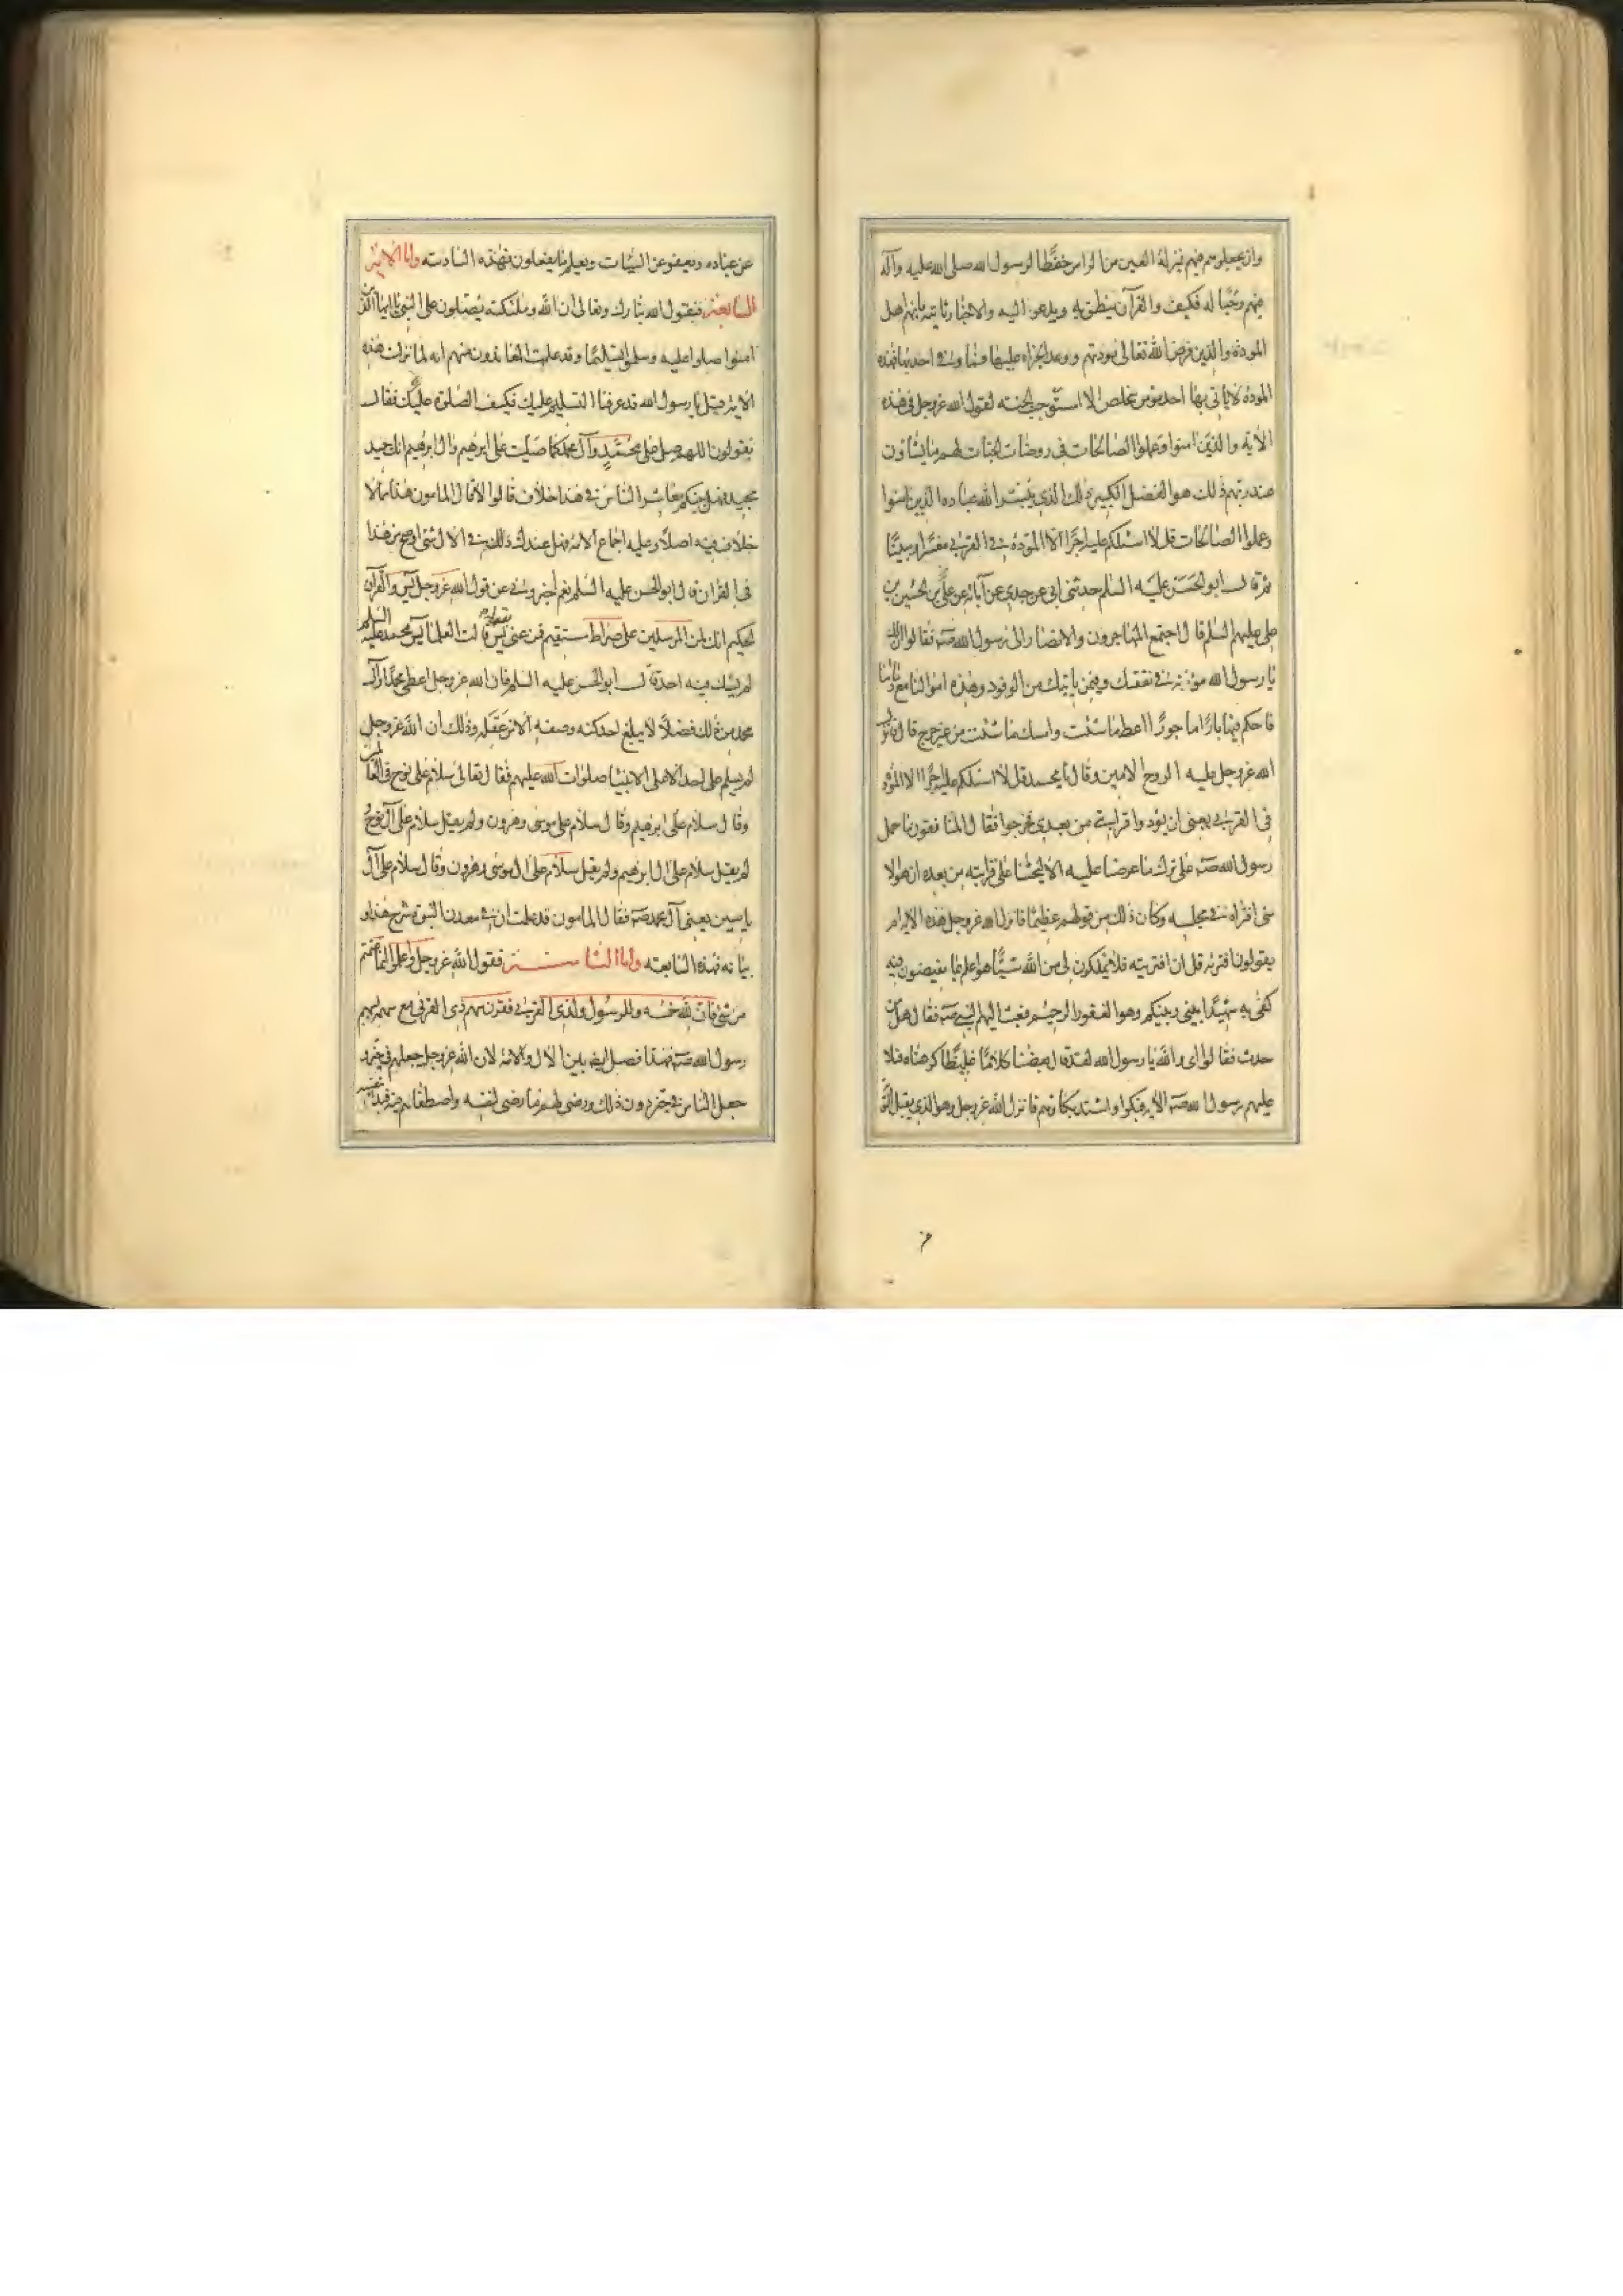 وان يجعلوهم فيهم بمنزلة العين من الراس حفظا لرسول الله صلى الله عليه وآله
فيهم وحبا له فكيف والقرآن ينطق به ويدعو اليه والاخبار ثابتة بانهم اهل
المودة والذين فرض الله تعالى مودتهم ووعد الجزاء عليها فما وفى احد بها فهذه
المودة لا ياتى بها احد مؤمن مخلص الا استوجب الجنة لقول الله عز وجل فى هذه
الآية والذين امنوا وعملوا الصالحات فى روضات الجنات لهم ما يشاؤن
عند ربهم ذلك هو الفضل الكبير ذلك الذى يبشر الله عباده الذين امنوا
وعملوا الصالحات قل لا اسئلكم عليه اجرا الا المودة فى القربى مفسرا ومبينا
ثم قال ابو الحسن عليه السلم حدثنى ابى عن جدى عن آبائه عن على بن الحسين بن
على عليهم السلم قال اجتمع المهاجرون والانصار الى رسول الله صه فقالوا ان لك
يا رسول الله مؤنة فى نفقتك وفيمن ياتيك من الوفود وهذه اموالنا مع دمائنا
فاحكم فيها بارا ماجورا اعط ما شئت وامسك ما شئت من غير حرج قال فانزل
الله عز وجل عليه الروح الامين وقال يا محمد قل لا اسئلكم عليه اجرا الا المودة
فى القربى يعنى ان يودوا قرابتى من بعدى فخرجوا فقال المنافقون ما حمل
رسول الله صه على ترك ما عرضنا عليه الا ليحثنا على قرابته من بعده ان هو الا
شئ افتراه فى مجلسه وكان ذلك من قولهم عظيما فانزل الله عز وجل هذه الآية ام
يقولون افتريه قل ان افتريته فلا تملكون لى من الله شيئا هو اعلم بما تفيضون فيه
كفى به شهيدا بينى وبينكم وهو الغفور الرحيم فبعث اليهم النبى صه فقال هل من
حدث فقالوا اى والله يا رسول الله لقد قال بعضنا كلاما غليظا كرهناه فتلا
عليهم رسول الله صه الآية فبكوا واشتد بكاؤهم فانزل الله عز وجل وهو الذى يقبل التوبة
عن عباده ويعفو عن السيئات ويعلم ما يفعلون فهذه السادسة واما الآية
السابعة فيقول الله تبارك وتعالى ان الله وملئكته يصلون على النبى يا ايها الذين
امنوا صلوا عليه وسلموا تسليما وقد علمت المعاندون منهم انه لما نزلت هذه
الآية قيل يا رسول الله قد عرفنا التسليم عليك فكيف الصلوة عليك فقال
تقولون اللهم صل على محمد وآل محمد كما صليت على ابرهيم وال ابرهيم انك حميد
مجيد فهل بينكم معاشر الناس فى هذا خلاف قالوا لا قال المامون هذا مما لا
خلاف فيه اصلا وعليه اجماع الامة فهل عندك فى الال شئ اوضح من هذا
فى القران قال ابو الحسن عليه السلم نعم اخبرونى عن قول الله عز وجل يس والقرآن
الحكيم انك لمن المرسلين على صراط مستقيم فمن عنى بقوله يس قالت العلماء يس محمد عليه السلم
لم يشك فيه احد قال ابو الحسن عليه السلم فان الله عز وجل اعطى محمدا وآل
محمد من ذلك فضلا لا يبلغ احد كنه وصفه الا من عقله وذلك ان الله عز وجل
لم يسلم على احد الا على الانبياء صلوات الله عليهم فقال تعالى سلام على نوح فى العالمين
وقال سلام على ابرهيم وقال سلام على موسى وهرون ولم يقل سلام على آل نوح
لم يقل سلام على ال ابرهيم ولم يقل سلام على ال موسى وهرون وقال سلام على آل
ياسين يعنى آل محمد صه فقال المامون قد علمت ان فى معدن النبوة شرح هذا و
بيانه فهذه السابعة واما الثامنة فقول الله عز وجل واعلموا انما غنمتم
من شئ فان لله خمسه وللرسول ولذى القربى فقرن سهم ذى القربى مع سهمه بسهم
رسول الله صه فهذا فصل ايضا بين الال والامة لان الله عز وجل جعلهم فى حيز و
جعل الناس فى حيز دون ذلك ورضى لهم ما رضى لنفسه واصطفاهم فيه فبدا بنفسه